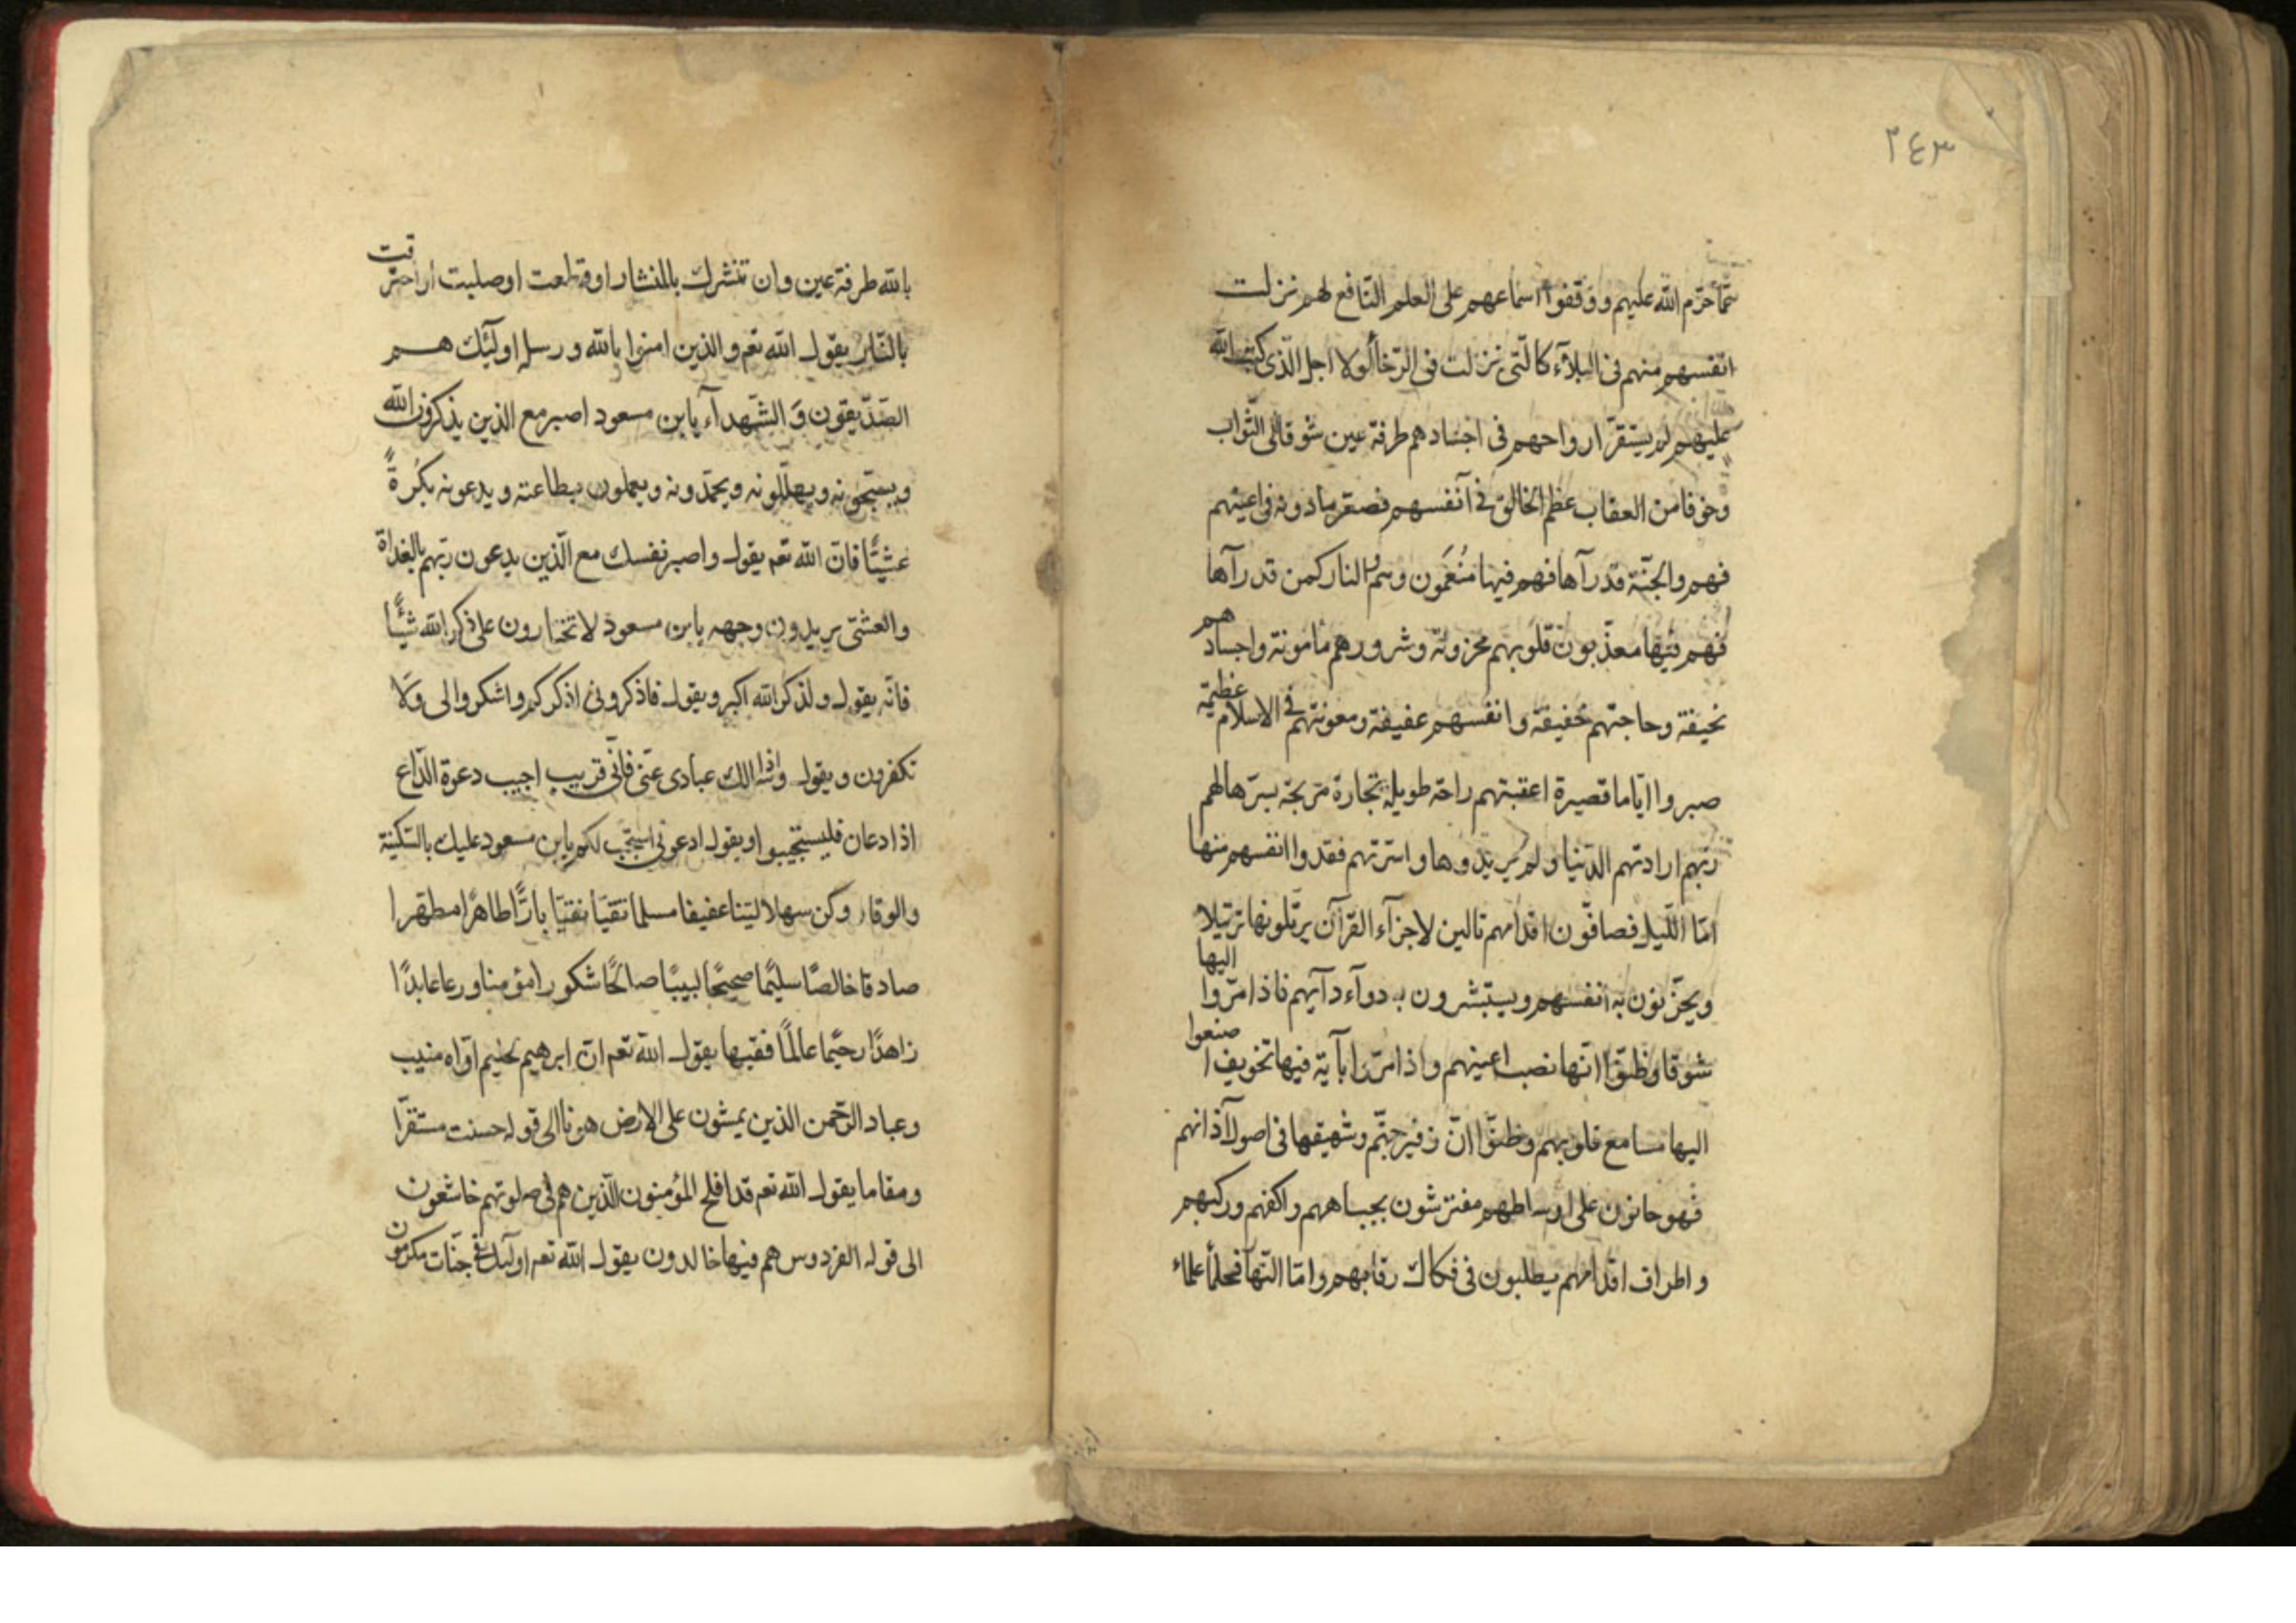 ٢٤٣
عمّا حرّم الله عليهم ووقفوا اسماعهم على العلم النّافع لهم نزلت
انفسهم منهم فى البلآء كالّتى نزلت فى الرّخا لولا اجل الّذى كتب الله
عليهم لم يستقرّ ارواحهم فى اجسادهم طرفة عين شوقا الى الثّواب
وخوفا من العقاب عظم الخالق فى آنفسهم فصغر مادونه فى اعينهم
فهم والجنّة قدرآها فهم فيها منعّمون وهم والنار كمن قدرآها
فهم فيها معذّبون قلوبهم محزونة وشرورهم مامونة واجسادهم
نحيفة وحاجتهم خفيفة وانفسهم عفيفة ومعونتهم فى الاسلام عظيمة
صبروا ايّاما قصيرة اعقبتهم راحة طويلة تجارة مربحة يسّرها لهم
ربّهم ارادتهم الدّنيا ولم يريدوها واسرتهم فقدوا انفسهم منها
امّا اللّيل فصافّون اقدامهم تالين لاجزآء القرآن يرتّلونها ترتيلا
ويحزّنون به انفسهم ويستبشرون به دوآء دآئهم فاذا مرّوا اليها
شوقا وظنّوا انّها نصب اعينهم واذا مرّوا بآية فيها تخويف اصنعوا
اليها مسامع قلوبهم وظنّوا انّ زفير جهنّم وشهيقها فى اصول آذانهم
فهو حانون على اوساطهم مفترشون بجباههم واكفهم وركبهم
واطراف اقدامهم يطلبون فى فكاك رقابهم وامّا النّهآ فحلمأ علمآء
بالله طرفة عين وان تنشرك بالمنشار اوقطعت اوصلبت اواحترقت
بالنّار يقول الله تعم والذين امنوا بالله ورسله اولٓئك هم
الصّدّيقون وَ الشّهدآء يابن مسعود اصبر مع الذين يذكرون الله
ويسبّحونه ويهلّلونه ويحمّدونه ويعملون بطاعته ويدعونه بكُرةً
عشيًّا فانّ الله تعم يقول واصبر نفسك مع الّذين يدعون ربّهم بالغداة
والعشىّ يريدون وجهه يابن مسعود لا تختارون على ذكر الله شئًا
فانّه يقول ولذكر الله اكبر ويقول فاذكرونى اذكركم واشكروا لى وَلا
تكفرون ويقول واذا سالك عبادى عنّى فانّى قريب اجيب دعوة الدّاع
اذا دعان فليستجيبوا ويقول ادعونى استجب لكم يابن مسعود عليك بالسّكينة
والوقار وكن سهلا ليّنا عفيفا مسلما تقيّا نقيّا بارًّا طاهرًا مطهّرا
صادقا خالصًا سليمًا صحيحًا لبيبًا صالحًا شكورا مؤمنا ورعا عابدًا
زاهدًا رحيمًا عالمًا فقيها يقول الله تعم انّ ابرهيم لحليم اوّاه منيب
وعباد الرّحمن الذين يمشون على الارض هونا الى قوله حسنت مستقرّا
ومقاما يقول الله تعم قد افلح المؤمنون الّذين هم فى صلوتهم خاشعون
الى قوله الفردوس هم فيها خالدون يقول الله تعم اولٓئك فى جنّات مكرمون